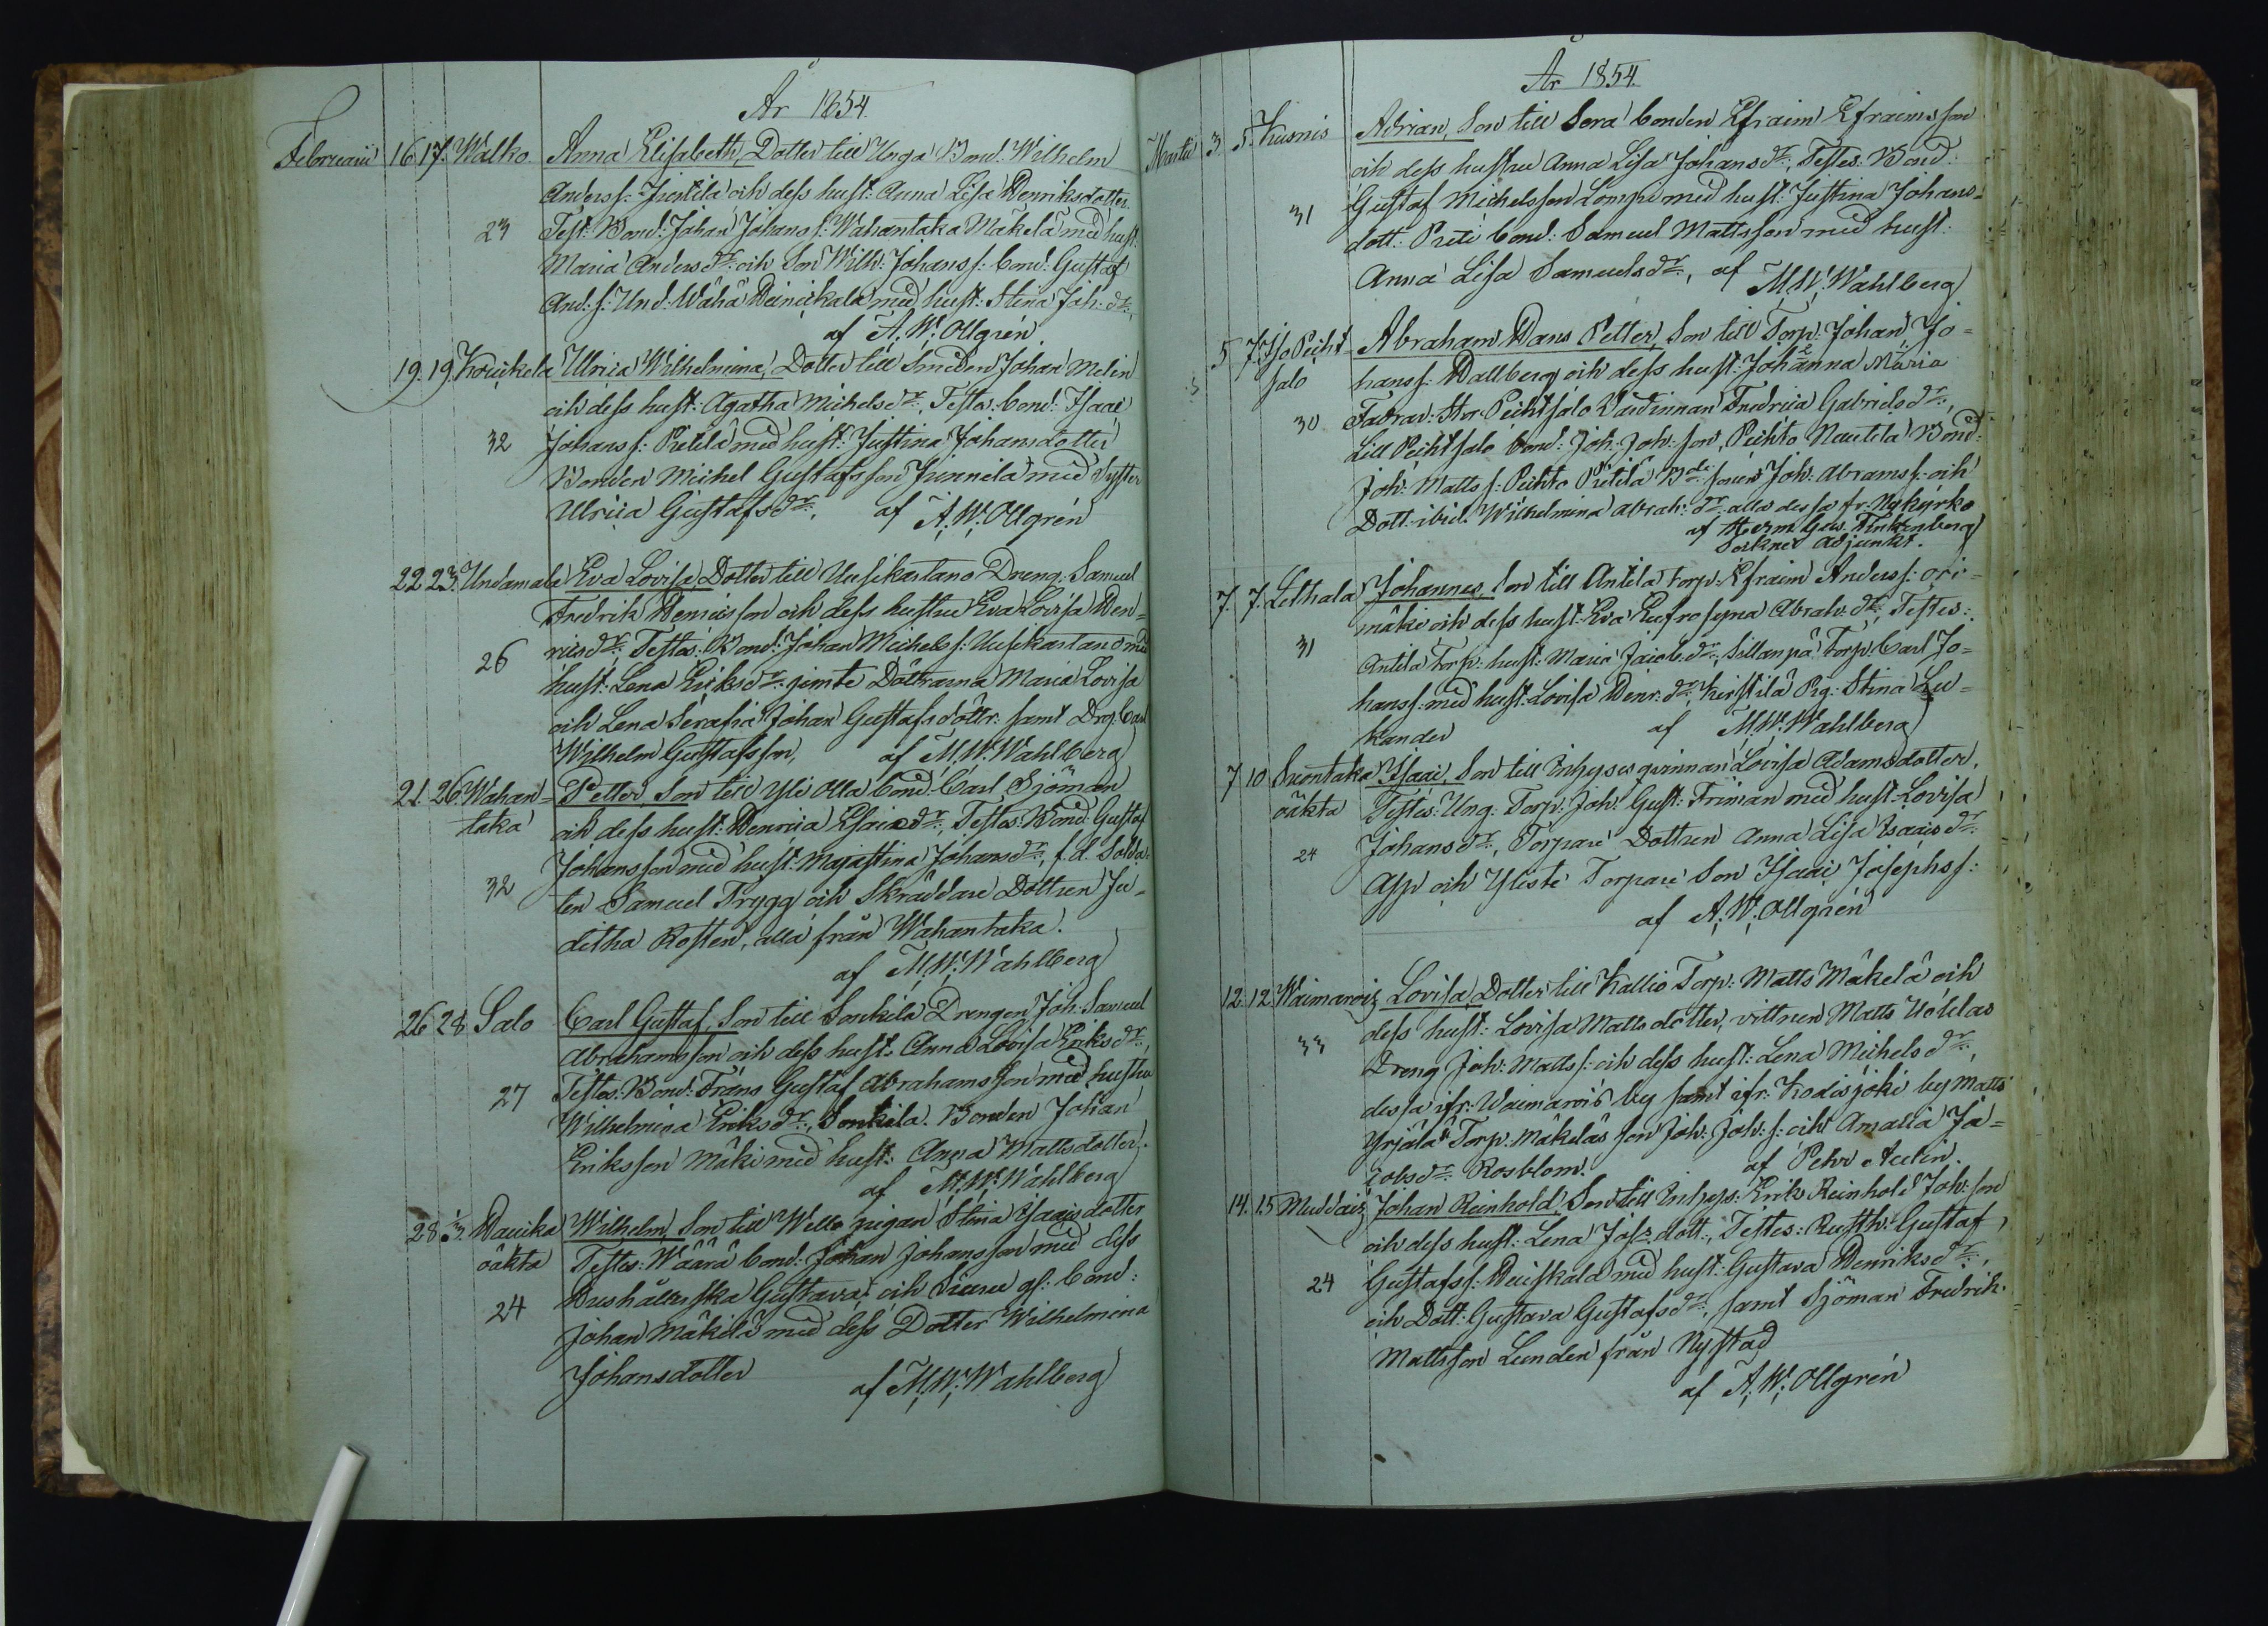 År 1854.
Februarii 16 17. Walko Anna Elisabeth, Dotter till Unga Bond: Wilhelm
Anders s: Juntila och dess hust: Anna Lisa Henriksdotter
23 Test: Bond: Johan Johans s: Wahantaka Mäkelä med hust:
Maria Andersdr: och Son Wilh: Johans s: bond: Gustaf
And: s: Und: Wähä Heinikkala med hust: Stina Joh: dr:,
af A. W. Ollgrén
19. 19. Koukela Ulrica Wilhelmina, Dotter till Smeden Johan Melin
och dess hust: Agatha Michelsdr:, Testes: bond: Isaac
32 Johans s: Pietilä med hust: Justina Johansdotter
Bonden Michel Gustafsson Junnila med Syster
Ulrica Gustafsdr:, af A. W. Ollgrén
22 23. Undamala Eva Lovisa, Dotter till Uusikartano Dreng: Samuel
Fredrik Henricsson och dess hustru Eva Lovisa Hen=
26 ricsdr:, Testes: Bond: Johan Michels s: Uusikartano med
hust: Lena Eriksdr: jemte Döttrarna Maria Lovisa
och Lena Serafia Johan Gustafs döttr: samt Drg: Carl
Wilhelm Gustafsson, af M. W. Wahlberg
21. 26. Wahan= Petter, Son till Yli Olla bond: Carl Sjöman
taka och dess hust: Henrica Esaiedr:, Testes: Bond: Gustaf
Johansson med hust: Majastina Johansdr:, f.d. Solda=
32 ten Samuel Trygg och Skräddare Dottren Ju=
ditha Rosten, alla från Wahantaka.
af M. W. Wahlberg
26 28. Salo Carl Gustaf, Son till Sonkila Drengen Joh: Samuel
Abrahamsson och dess hust: Anna Lovisa Eriksdr:,
27 Testes: Bond: Frans Gustaf Abrahamsson med hustru
Wilhelmina Eriksdr:, Sonkila. Bonden Johan
Eriksson Mäki med hust: Anna Mattsdotter.
af M. W. Wahlberg
28 1/3. Hauika Wilhelm, Son till Welle pigan Stina Isaacsdotter
oäkta Testes: Wäärä bond: Johan Johansson med dess
24 Hushållerska Gustava, och bond:
Johan Mäkilä med dess Dotter Wilhelmina
Johansdotter af M. W. Wahlberg
År 1854.
Martii 3. 5. Kusnis Adrian, Son till Sora bonden Efraim Efraimsson
och dess hustru Anna Lisa Johansdr:, Testes: Bond:
31 Gustaf Michelsson Lompo med hust: Justina Johans=
dott: Preti bond: Samuel Mattsson med hust:
Anna Lisa Samuelsdr:, af M. W. Wahlberg
5. 7. Iso Peiht Abraham Hans Petter, Son till Torp: Johan Jo=
salo hans s: Hallberg och dess hust: Johanna Maria
30 Fadrar: Stor Peihtsalo Värdinnan Fredrica Gabrielsdr:,
Lill Peihtsalo bond: Joh: Joh: son, Peihto Nautela Bond:
Joh: Matts s: Peihto Pietilä Bde sonen Joh: Abrams s: och
Dott: ibid. Wilhelmina Abrah: dr: alla dessa fr: Nykyrko
af Herm: Gust: Finkenberg
Sockne Adjunkt.
7. 7. Lethala Johannes, Son till Antila torp: Efraim Anders s: Ori=
mäki och dess hust: Eva Eufrosyna Abrah: dr:, Testes:
31 Antila torp: hust: Maria Jacobsdr:, Sillanpä torp: Carl Jo=
hans s: med hust: Lovisa Henr: dr:, Kirstilä Pig: Stina Lu=
kander af M. W. Wahlberg
7 10 Suontaka Isaac, Son till Inhyses qvinnan Lovisa Adamsdotter.
oäkta Testes: Ung: Torp: Joh: Gust: Friman med hust: Lovisa
24 Johansdr:, Torpare Dottren Anna Lisa Isaacsdr:
Asp och Yliste Torpare Son Isaac Josephs s:
af A. W. Ollgrén
12. 12 Waimarois Lovisa, Dotter till Kallio Torp: Matts Mäkelä och
dess hust: Lovisa Mattsdotter, vittnen Matts Uotilas
33 Dreng Joh: Matts s: och dess hust: Lena Michelsdr:,
dessa ifr: Waimarois by samt ifr: Kodisjoki by Matts
Yrjälä Torp: Mäkeläs son Joh: Joh: s: och Amalia Ja=
cobsdr: Rosblom. af Pehr Aulin.
14. 15 Muddais Johan Reinhold, Son till Inhys: Erik Reinhold Joh: son
och dess hust: Lena Jos: dott:, Testes: Rusth: Gustaf
24 Gustafs s: Heiskala med hust: Gustava Henriksdr:,
och Dott: Gustava Gustafsdr:, samt Sjöman Fredrik
Mattsson Lunden från Nystad
af A. W. Ollgrén